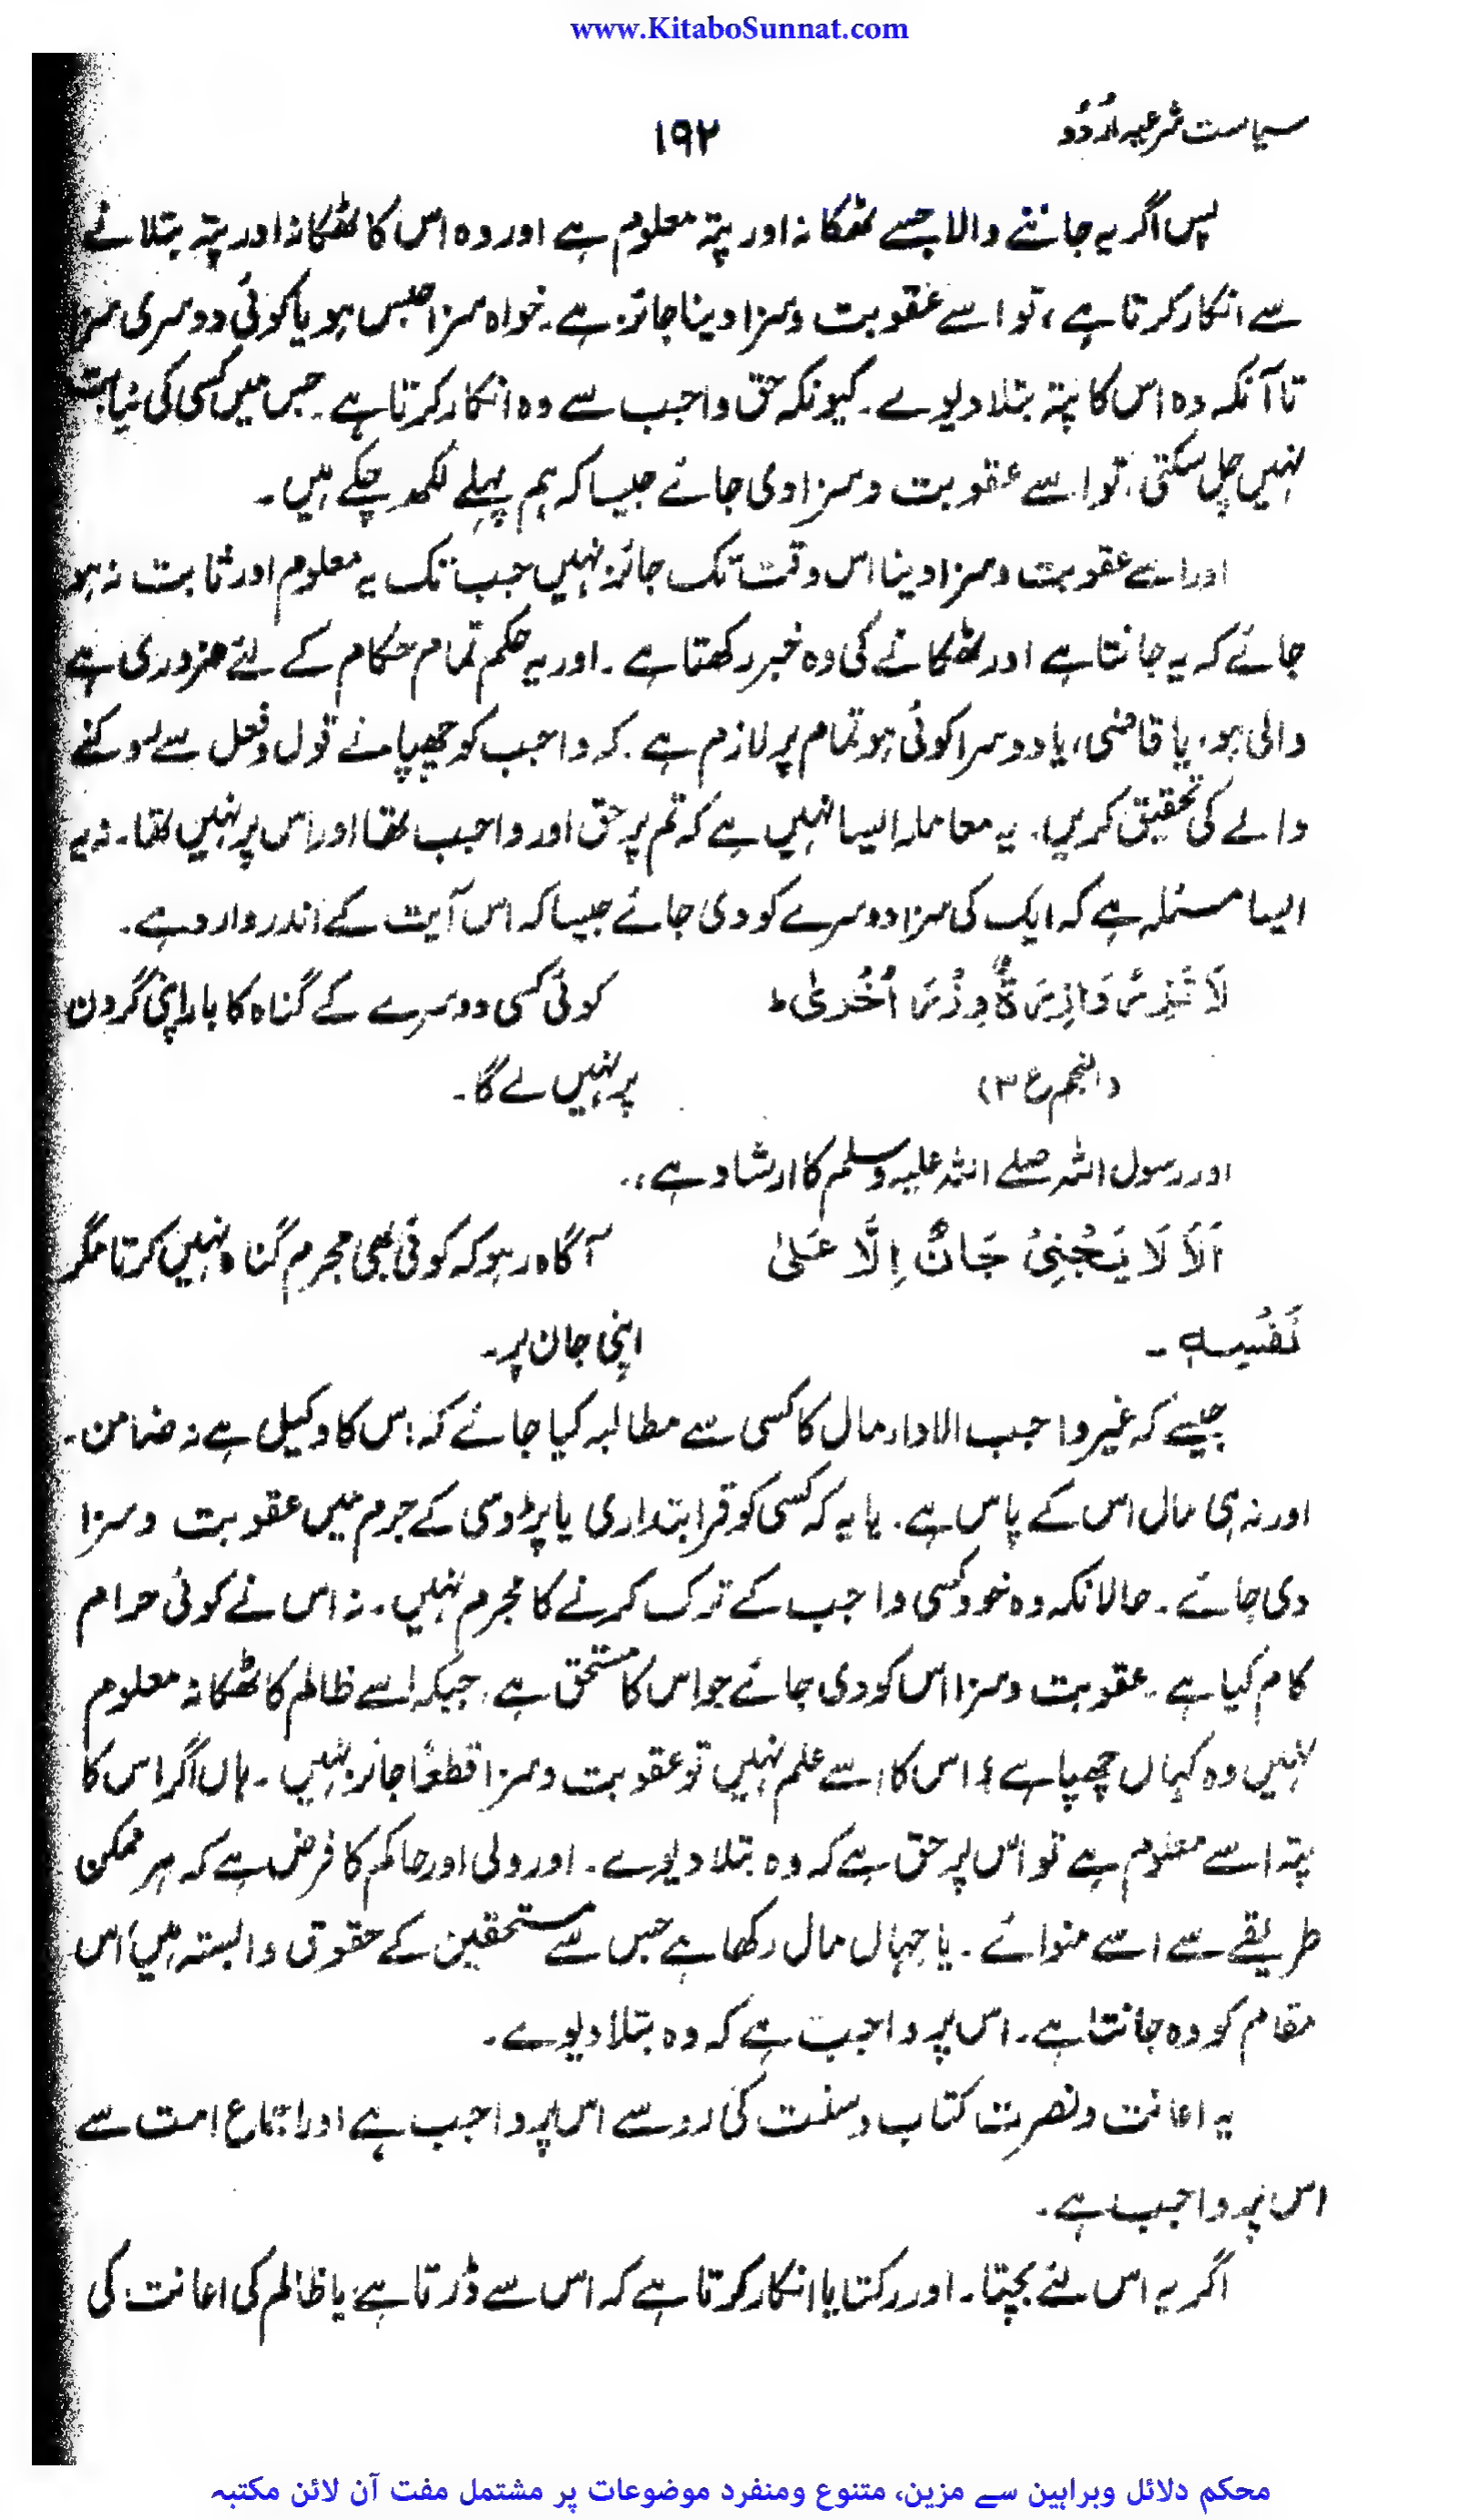 www.KitaboSunnat.com
سیاست شرعیہ اُردُو
۱۹۲
پس اگر یہ جاننے والا جسے ٹھکانہ اور پتہ معلوم ہے اور وہ اس کا ٹھکانہ اور پتہ بتلانے
سے انکار کرتا ہے، تو اسے عقوبت و سزا دینا جائز ہے۔ خواہ سزا حبس ہو یا کوئی دوسری سز
تا آنکہ وہ اس کا پتہ بتلا دیوے۔ کیونکہ حق واجب سے وہ انکار کرتا ہے۔ جس میں کسی کی نیابت
نہیں چل سکتی، تو اسے عقوبت و سزا دی جائے جیسا کہ ہم پہلے لکھ چکے ہیں۔
اور اسے عقوبت و سزا دینا اس وقت تک جائز نہیں جب تک یہ معلوم اور ثابت نہ ہو
جائے کہ یہ جانتا ہے اور ٹھکانے کی وہ خبر رکھتا ہے۔ اور یہ حکم تمام حکام کے لئے ضروری ہے
والی ہو، یا قاضی، یا دوسرا کوئی ہو تمام پر لازم ہے۔ کہ واجب کو چھپانے قول و فعل سے روکنے
والے کی تحقیق کریں۔ یہ معاملہ ایسا نہیں ہے کہ تم پر حق اور واجب تھا اور اس پر نہیں تھا۔ نہ یہ
ایسا مسئلہ ہے کہ ایک کی سزا دوسرے کو دی جائے جیسا کہ اس آیت کے اندر وارد ہے۔
لَا تَزِرُ وَازِرَةٌ وِّزْرَ اُخْرىٰ ط
کوئی کسی دوسرے کے گناہ کا بار اپنی گردن
(النجم ع ۳)
پر نہیں لے گا۔
اور رسول اللہ صلے اللہ علیہ وسلم کا ارشاد ہے،۔
اَلَا لَا يَجْنِىْ جَانٌ اِلَّا عَلىٰ
آگاہ رہو کہ کوئی بھی مجرم گناہ نہیں کرتا مگر
نَفْسِهٖ ۔
اپنی جان پر۔
جیسے کہ غیر واجب الادا، مال کا کسی سے مطالبہ کیا جائے کہ اس کا وکیل ہے نہ ضامن۔
اور نہ ہی مال اس کے پاس ہے۔ یا یہ کہ کسی کو قرابتداری یا پڑوسی کے جرم میں عقوبت و سزا
دی جائے۔ حالانکہ وہ خود کسی واجب کے ترک کرنے کا مجرم نہیں۔ نہ اس نے کوئی حرام
کام کیا ہے۔ عقوبت و سزا اس کو دی جائے جو اس کا مستحق ہے، جبکہ اسے ظالم کا ٹھکانہ معلوم
نہیں وہ کہاں چھپا ہے؟ اس کا اسے علم نہیں تو عقوبت و سزا قطعًا جائز نہیں۔ ہاں اگر اس کا
پتہ اسے معلوم ہے تو اس پر حق ہے کہ وہ بتلا دیوے۔ اور ولی اور حاکم کا فرض ہے کہ ہر ممکن
طریقے سے اسے منوائے۔ یا جہاں مال رکھا ہے جس سے مستحقین کے حقوق وابستہ ہیں اس
مقام کو وہ جانتا ہے۔ اس پر واجب ہے کہ وہ بتلا دیوے۔
یہ اعانت و نصرت کتاب و سنت کی رو سے اس پر واجب ہے اور اجماع امت سے
اس پر واجب ہے۔
اگر یہ اس لئے بچتا۔ اور رکتا یا انکار کرتا ہے کہ اس سے ڈرتا ہے یا ظالم کی اعانت کی
محکم دلائل وبراہین سے مزین، متنوع ومنفرد موضوعات پر مشتمل مفت آن لائن مکتبہ